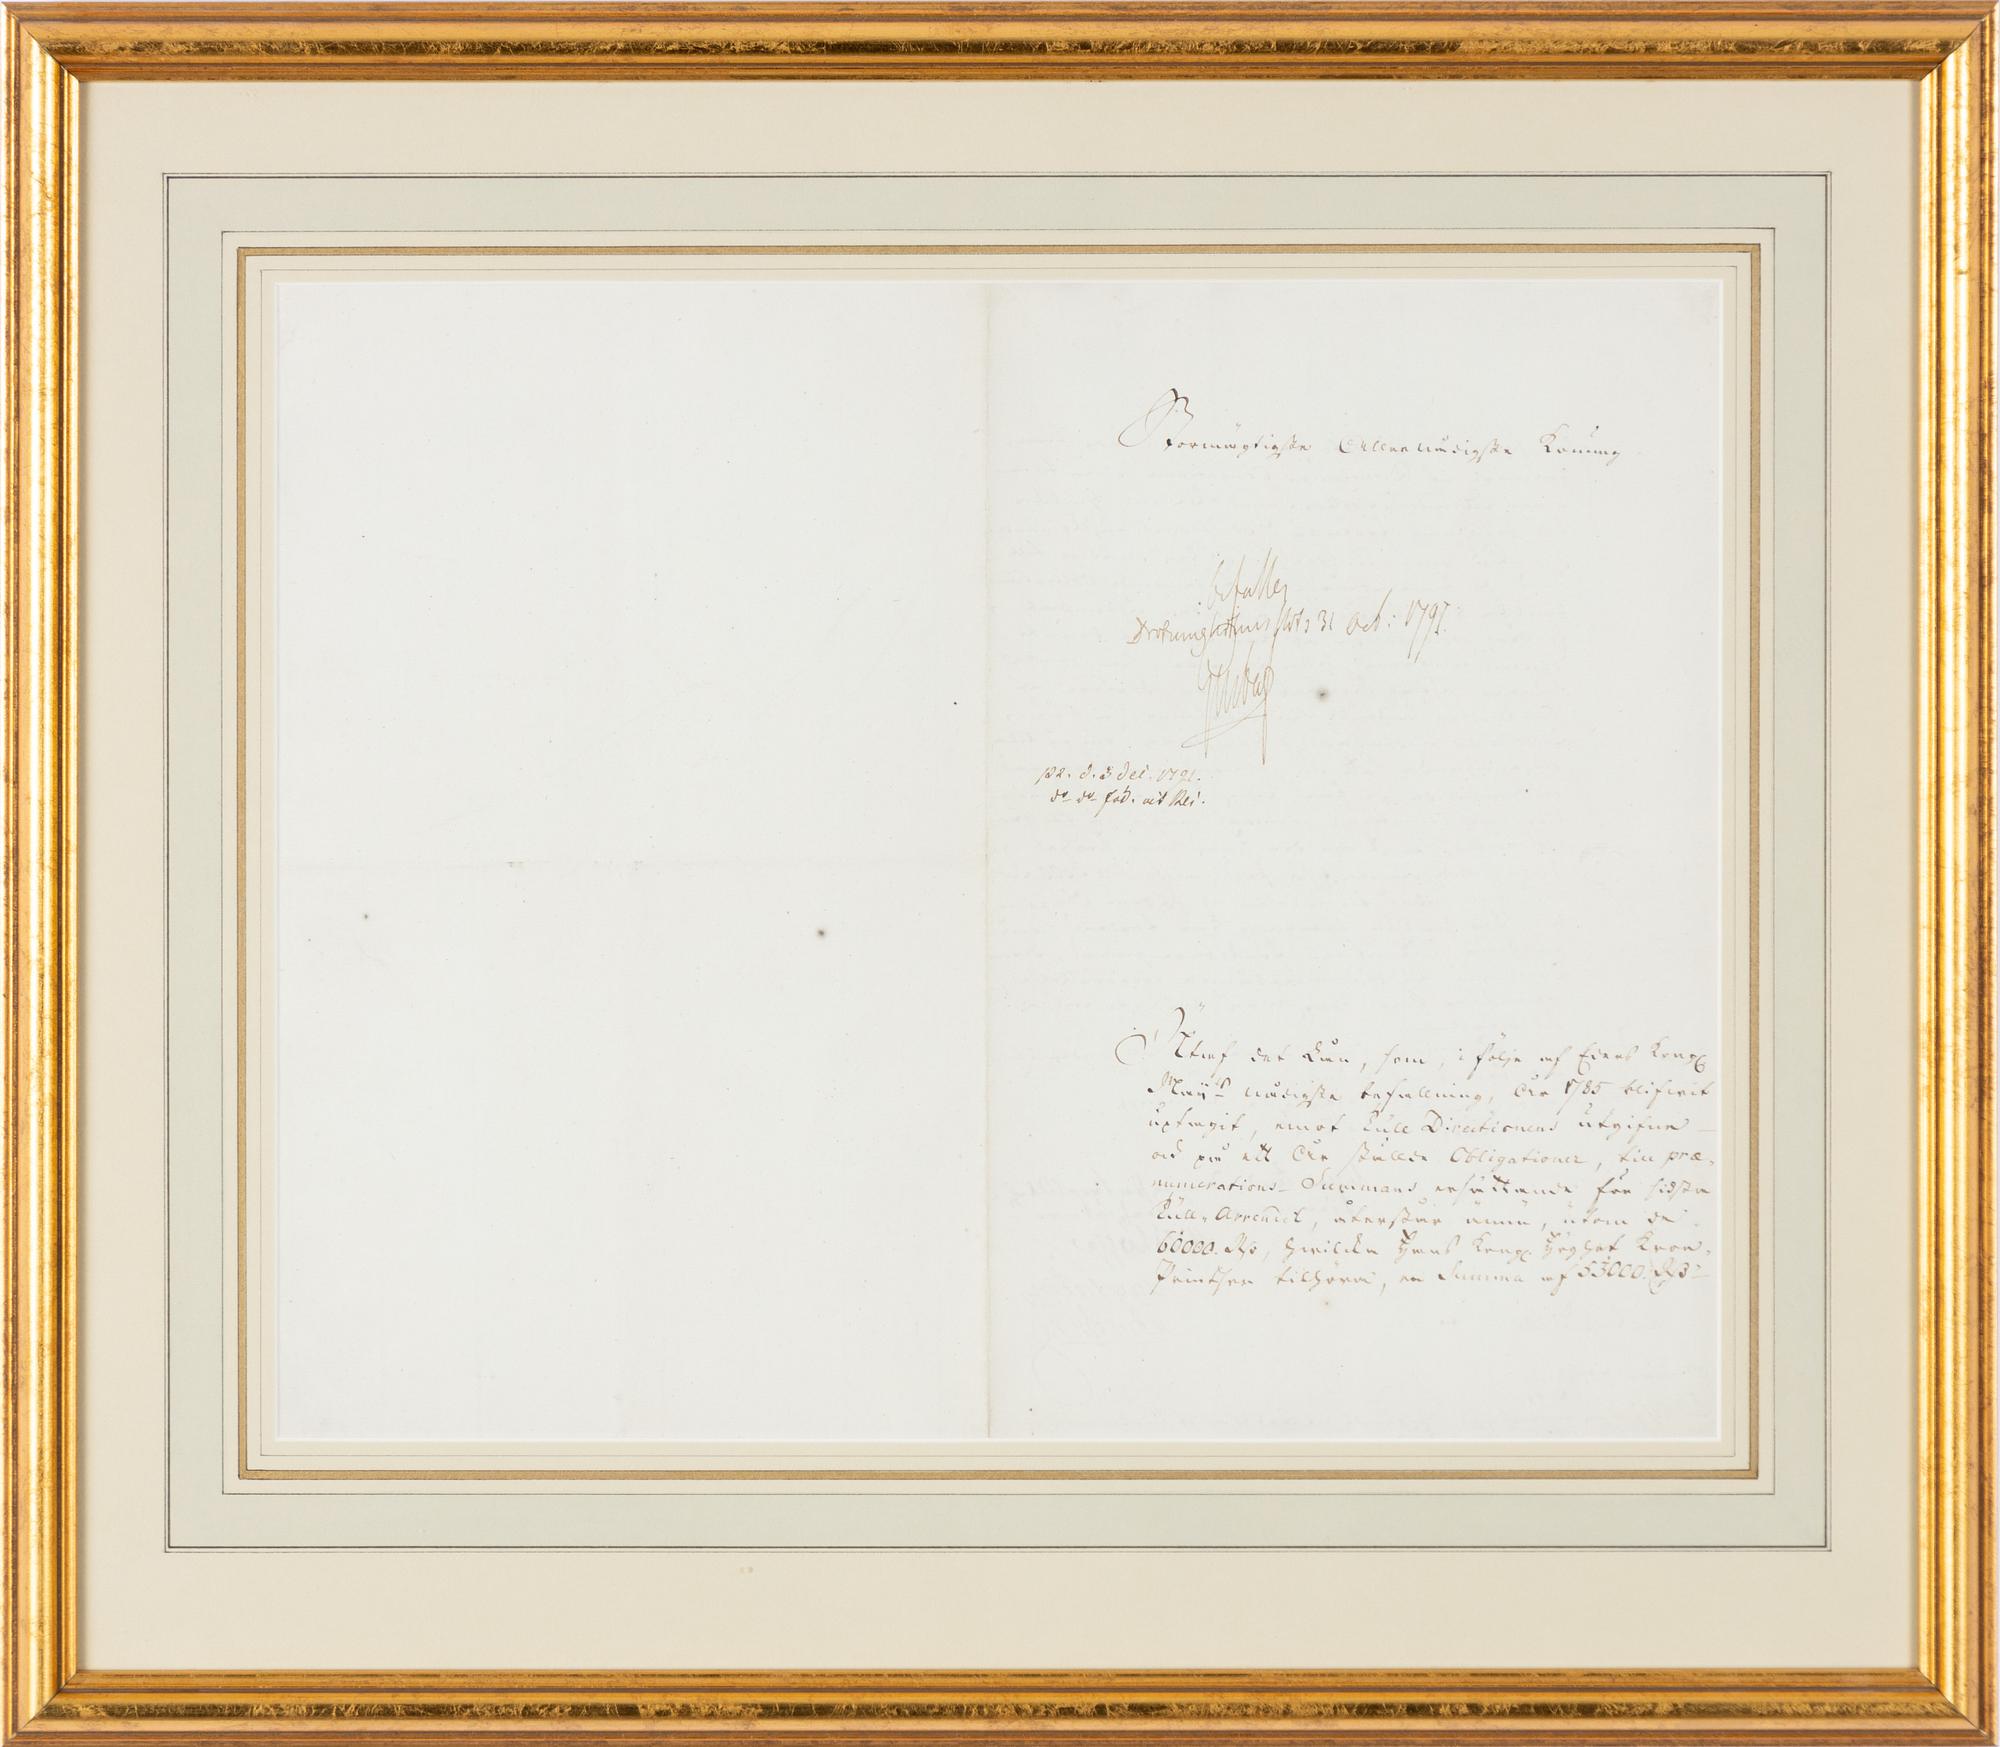 Stormägtigste Allernådigste Konung
bifalles
Drotningholms slott 31 Oct: 1791
Gustaf
d. 3 Dec. 1791.
Utaf det Lån, som, i följe af Eders Kongl.
Maij:ts nådigste befallning, År 1785 blifwit
uptagit, emot Tull Directionens utgifne
och på ett År stälde Obligationer, till præ-
numerations-Summans ersättande för sidsta
Tull-Arrendet, återstår ännu, utom de
60000. Rd, hwilka Hans Kongl. Höghet Kron-
Printsen tilhörer, en Summa af 53000. Rd